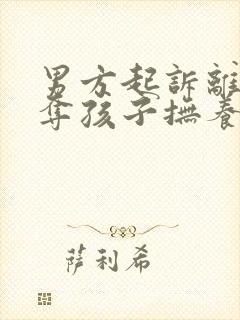 男方起訴離
奪孩子撫養
萨利希